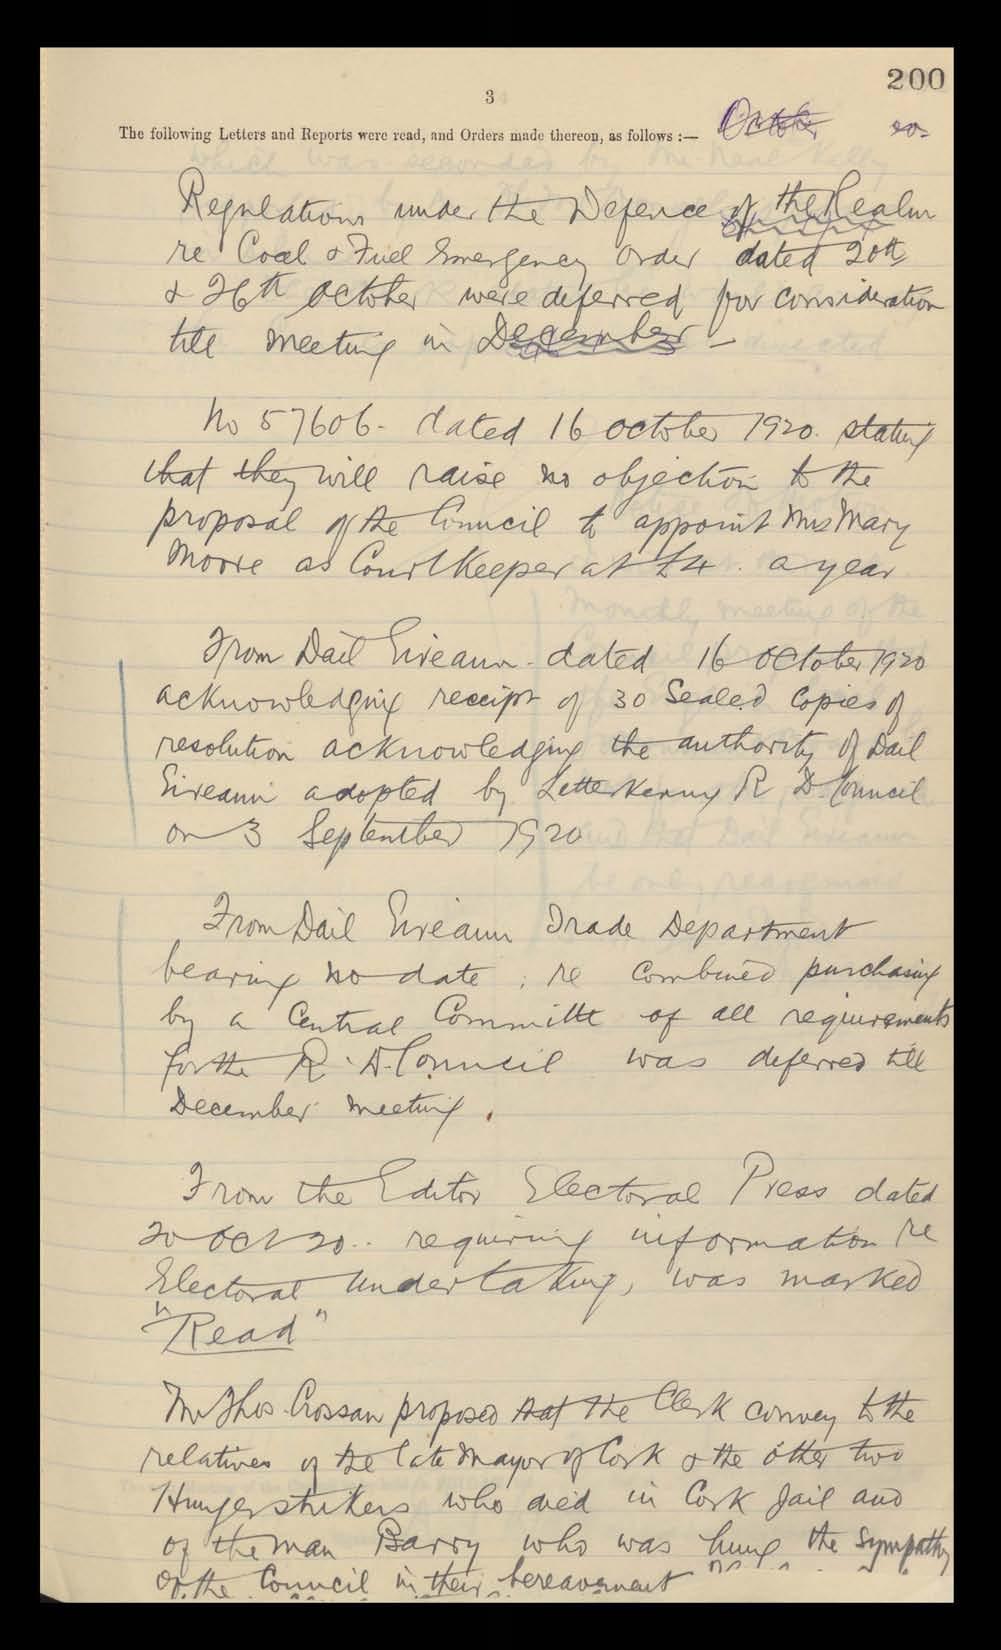 200
3
The following Letters and Reports were read, and Orders made thereon, as follows :— October 20-
Regulations under the Defence of the Realm
re Coal & Fuel Emergency Order dated 20th
& 26th October were deferred for consideration
till meeting in December -
No 57606- dated 16 October 1920. stating
that they will raise no objection to the
proposal of the Council to appoint Mrs Mary
Moore as Court Keeper at £4. a year
From Dail Eireann - dated 16 October 1920
acknowledging receipt of 30 Sealed Copies of
resolution acknowledging the authority of Dail
Eireann adopted by Letterkenny R. D. Council
on 3 September 1920
From Dail Eireann Trade Department
bearing no date, re combined purchasing
by a Central Committe of all requirements
for the R. D. Council was deferred till
December meeting.
From the Editor Electoral Press dated
20 Oct 20.. requiring information re
Electoral Undertaking, was marked
"Read"
Mr Thos Crossan proposed that the Clerk convey to the
relatives of the late Mayor of Cork & the other two
Hungerstrikers who died in Cork Jail and
of the man Barry who was hung the sympathy
of the Council in their bereavement